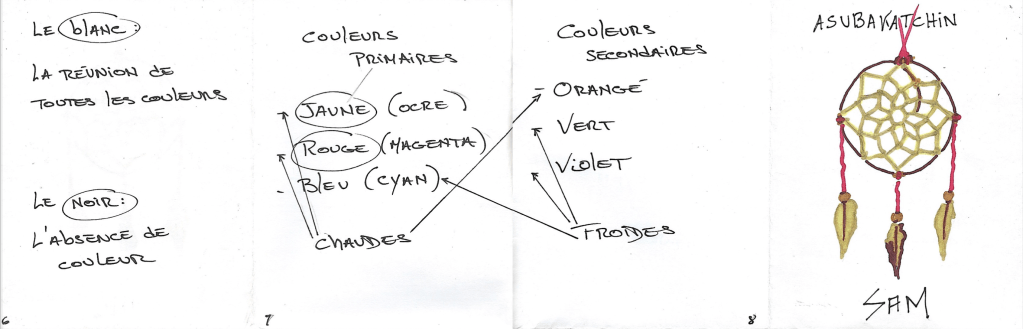 LE blANC:
LA RÉUNION DE
TOUTES LES COULEURS
LE NOIR:
L'AbSENCE DE
COULEUR
6
COULEURS
PRIMAIRES
- JAUNE (OCRE)
- ROUGE (MAGENTA)
- BLEU (CYAN)
CHAUDES
7
COULEURS
SECONDAIRES
- ORANGÉ
- VERT
- ViOLET
FROIDES
8
ASUBAKATCHiN
SAM